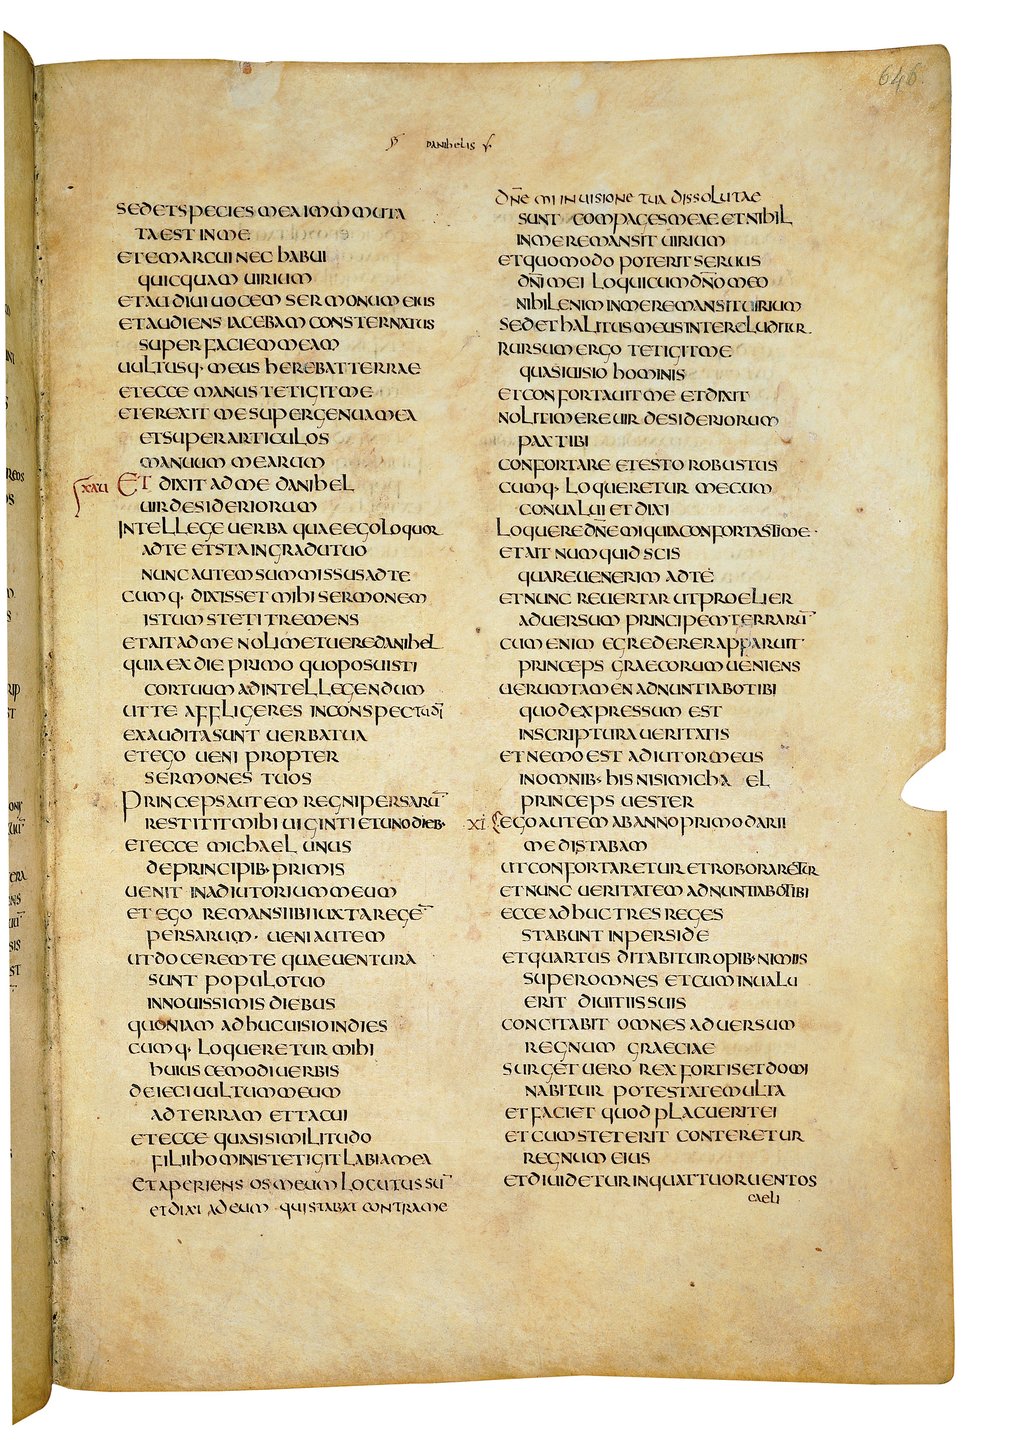 646
DANIHELIS
SED ET SPECIES MEA IMMUTA
TA EST IN ME
ET EMARCUI NEC HABUI
QUICQUAM UIRIUM
ET AUDIUI UOCEM SERMONUM EIUS
ET AUDIENS IACEBAM CONSTERNATUS
SUPER FACIEM MEAM
UULTUSQ· MEUS HEREBAT TERRAE
ET ECCE MANUS TETIGIT ME
ET EREXIT ME SUPER GENUA MEA
ET SUPER ARTICULOS
MANUUM MEARUM
XXVI ET DIXIT AD ME DANIHEL
UIR DESIDERIORUM
INTELLEGE UERBA QUAE EGO LOQUOR
AD TE ET STA IN GRADU TUO
NUNC AUTEM SUM MISSUS AD TE
CUMQ· DIXISSET MIHI SERMONEM
ISTUM STETI TREMENS
ET AIT AD ME NOLI METUERE DANIHEL
QUIA EX DIE PRIMO QUO POSUISTI
COR TUUM AD INTELLEGENDUM
UT TE AFFLIGERES IN CONSPECTU DĪ
EXAUDITA SUNT UERBA TUA
ET EGO UENI PROPTER
SERMONES TUOS
PRINCEPS AUTEM REGNI PERSARŪ
RESTITIT MIHI UIGINTI ET UNO DIEB·
ET ECCE MICHAEL UNUS
DE PRINCIPIB· PRIMIS
UENIT IN ADIUTORIUM MEUM
ET EGO REMANSI IBI IUXTA REGĒ
PERSARUM· UENI AUTEM
UT DOCEREM TE QUAE UENTURA
SUNT POPULO TUO
IN NOUISSIMIS DIEBUS
QUONIAM ADHUC UISIO IN DIES
CUMQ· LOQUERETUR MIHI
HUIUSCEMODI UERBIS
DEIECI UULTUM MEUM
AD TERRAM ET TACUI
ET ECCE QUASI SIMILITUDO
FILII HOMINIS TETIGIT LABIA MEA
ET APERIENS OS MEUM LOCUTUS SŪ
ET DIXI AD EUM QUI STABAT CONTRA ME
DÑE MI IN UISIONE TUA DISSOLUTAE
SUNT COMPAGES MEAE ET NIHIL
IN ME REMANSIT UIRIUM
ET QUOMODO POTERIT SERUUS
DÑI MEI LOQUI CUM DÑO MEO
NIHIL ENIM IN ME REMANSIT UIRIUM
SED ET HALITUS MEUS INTERCLUDITUR·
RURSUM ERGO TETIGIT ME
QUASI UISIO HOMINIS
ET CONFORTAUIT ME ET DIXIT
NOLI TIMERE UIR DESIDERIORUM
PAX TIBI
CONFORTARE ET ESTO ROBUSTUS
CUMQ· LOQUERETUR MECUM
CONUALUI ET DIXI
LOQUERE DÑE MI QUIA CONFORTASTI ME·
ET AIT NUMQUID SCIS
QUARE UENERIM AD TE
ET NUNC REUERTAR UT PROELIER
ADUERSUM PRINCIPEM TERRARŪ
CUM ENIM EGREDERER APPARUIT
PRINCEPS GRAECORUM UENIENS
UERUMTAMEN ADNUNTIABO TIBI
QUOD EXPRESSUM EST
IN SCRIPTURA UERITATIS
ET NEMO EST ADIUTOR MEUS
IN OMNIB· HIS NISI MICHA EL
PRINCEPS UESTER
XI EGO AUTEM AB ANNO PRIMO DARII
MEDI STABAM
UT CONFORTARETUR ET ROBORARETUR
ET NUNC UERITATEM ADNUNTIABO TIBI
ECCE ADHUC TRES REGES
STABUNT IN PERSIDE
ET QUARTUS DITABITUR OPIB· NIMIIS
SUPER OMNES ET CUM INUALU
ERIT DIUITIIS SUIS
CONCITABIT OMNES ADUERSUM
REGNUM GRAECIAE
SURGET UERO REX FORTIS ET DOMI
NABITUR POTESTATE MULTA
ET FACIET QUOD PLACUERIT EI
ET CUM STETERIT CONTERETUR
REGNUM EIUS
ET DIUIDETUR IN QUATTUOR UENTOS
CAELI